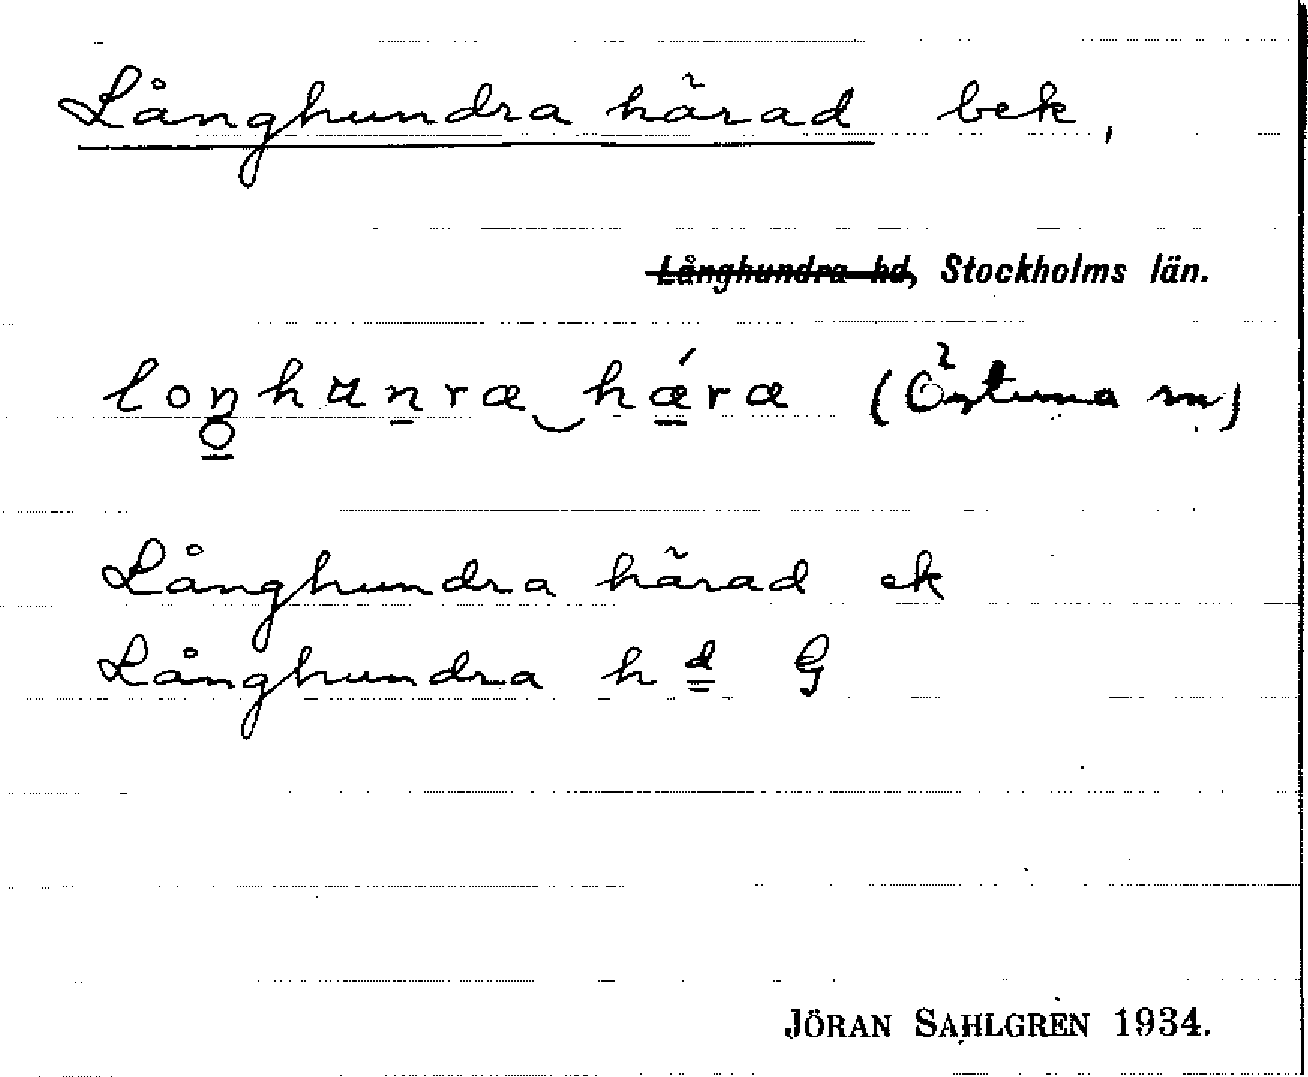 Långhundra härad bek,
Långhundra hd, Stockholms län.
loŋhunra hæ´ra (Östuna sn)
Långhundra härad ek
Långhundra hd G
JÖRAN SAHLGREN 1934.